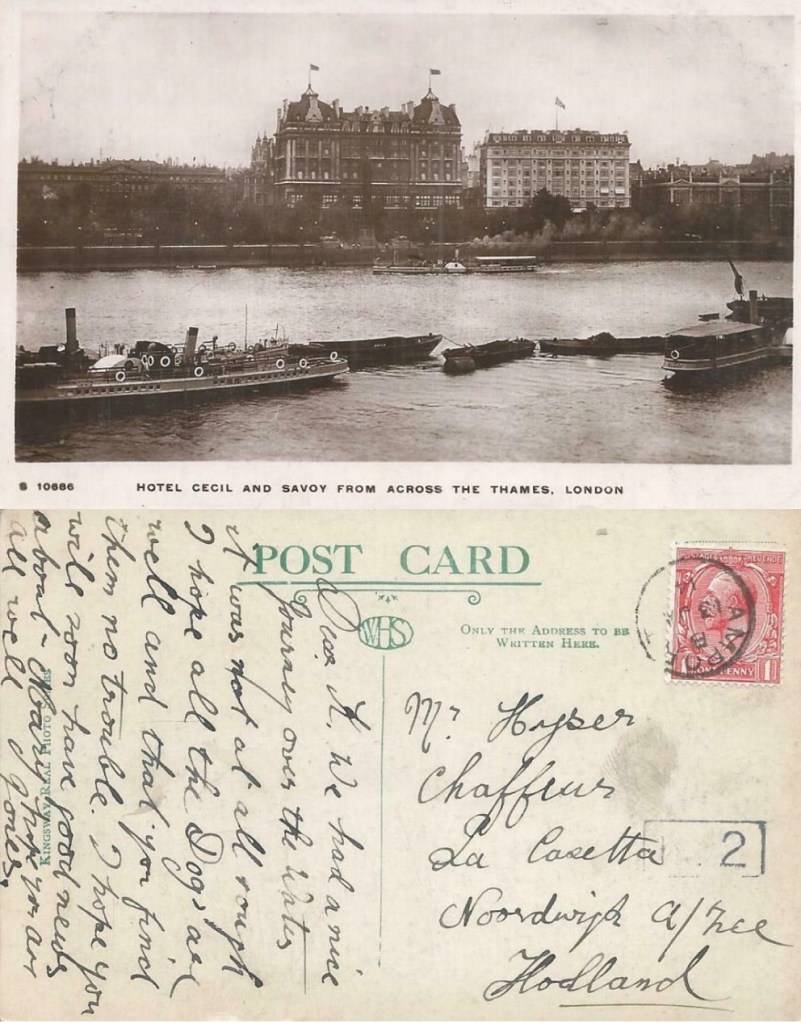 S 10686 HOTEL CECIL AND SAVOY FROM ACROSS THE THAMES, LONDON
POST CARD
WHS
ONLY THE ADDRESS TO BE
WRITTEN HERE.
ONE PENNY 1
KINGSWAY REAL PHOTO SERIES
Dear H. We had a nice
journey over the Water
it was not at all rough
I hope all the Dogs are
well and that you find
them no trouble. I hope you
will soon have good news
about Mary hope you are
all well
Jones.
Mr Hyser
Chaffeur
La Casetta
2
Noordwijk a/Zee
Holland